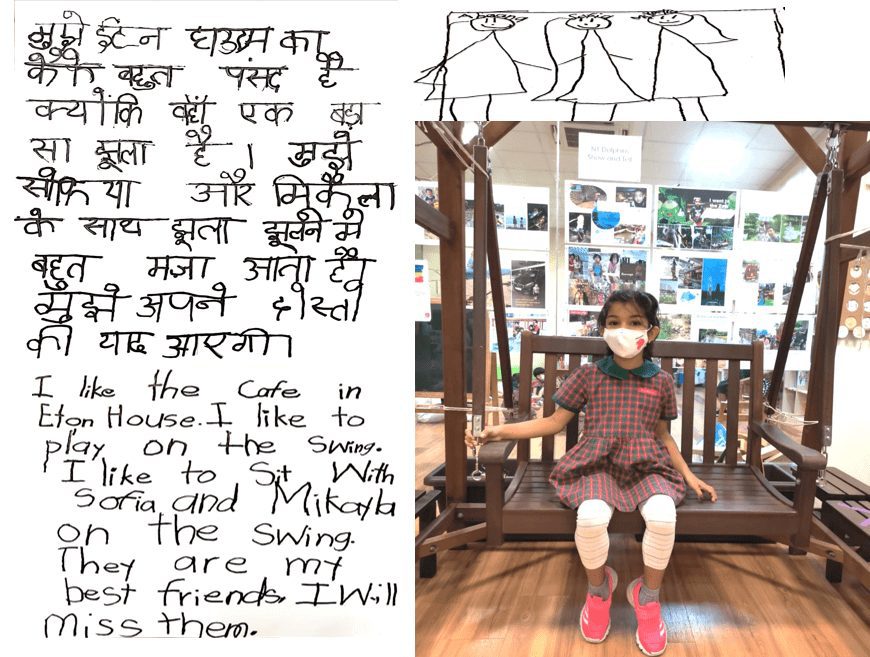 मुझे ईटन हाउस का
कैफे बहुत पंसद है
क्योंकि वहाँ एक बड़ा
सा झूला है।  मुझे
सोफिया और मिकैला
के साथ झूला झूलने मे
बहुत मजा आता है।
मुझे अपने दोस्तो
की याद आएगी।
I like the Cafe in
Eton House. I like to
play on the swing.
I like to Sit With
Sofia and Mikayla
on the swing.
They are my
best friends. I Will
Miss them.
N1 Dolphins
Show and Tell